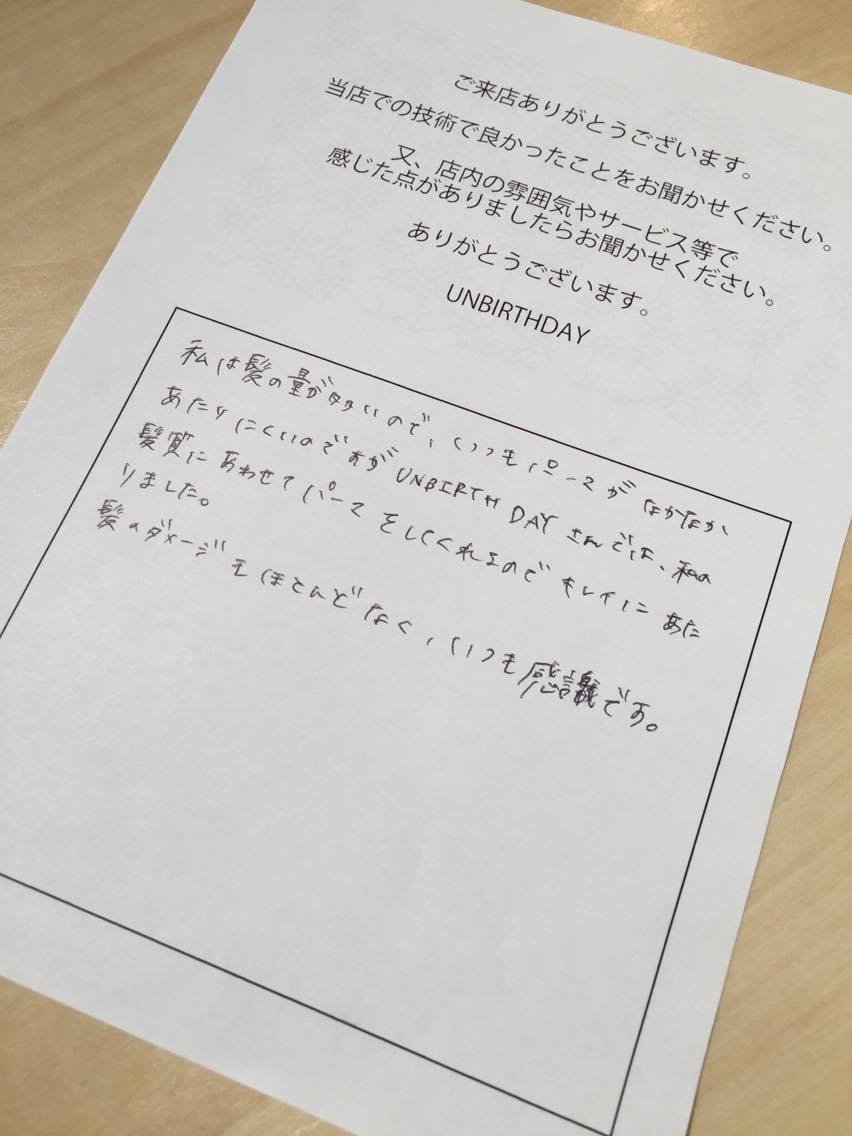 ご来店ありがとうございます。
当店での技術で良かったことをお聞かせください。
又、店内の雰囲気やサービス等で
感じた点がありましたらお聞かせください。
ありがとうございます。
UNBIRTHDAY
私は髪の量が多いので、いつもパーマがなかなか
あたりにくいのですが UNBIRTH DAY さんでは、私の
髪質にあわせてパーマをしてくれるのでキレイにあた
りました。
髪のダメージもほとんどなく、いつも感謝です。